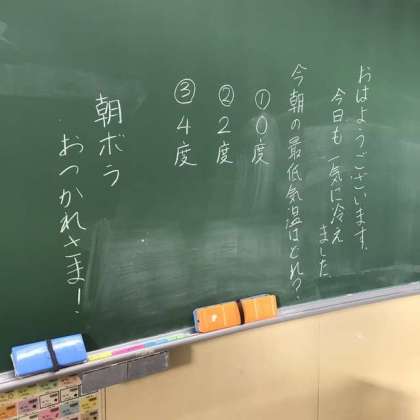 おはようございます。
今日も一気に冷え
ました。
今朝の最低気温はどれ?
①0度
②2度
③4度
朝ボラ
おつかれさま!